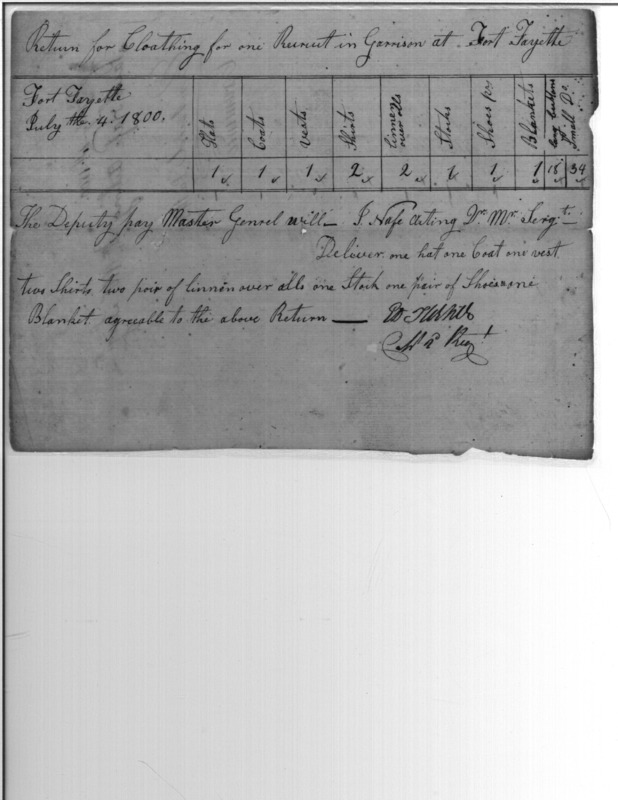 Return for Cloathing for one Recruit in Garrison at Fort Fayette
Fort Fayette
July the 4th 1800.
Hats
Coats
Vests
Shirts
linnen over alls
Stocks
Shoes prs
Blankets
large buttons
Small Do
1 1 1 2 2 1 1 1 18 34
The Deputy pay Master Genrel will
P. Nafe acting Qr. Mr. Sergt.
Deliver one hat one Coat one vest
two Shirts two pair of linnen over alls one Stock one pair of Shoes one
Blanket agreeable to the above Return